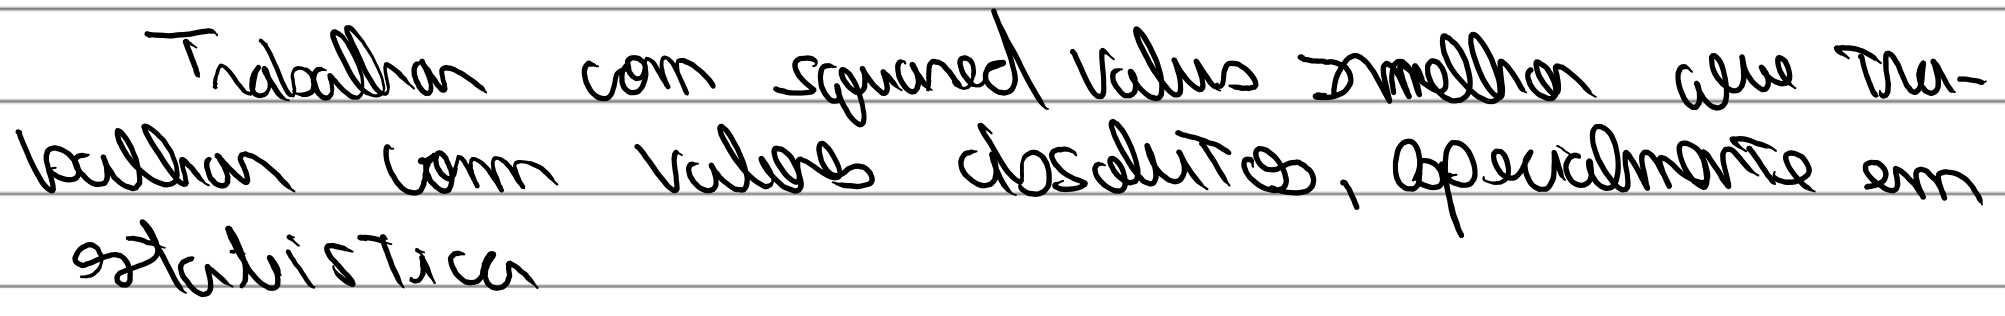 Trabalhar com squared values é melhor que tra-
balhar com valores absolutos, especialmente em
estatística